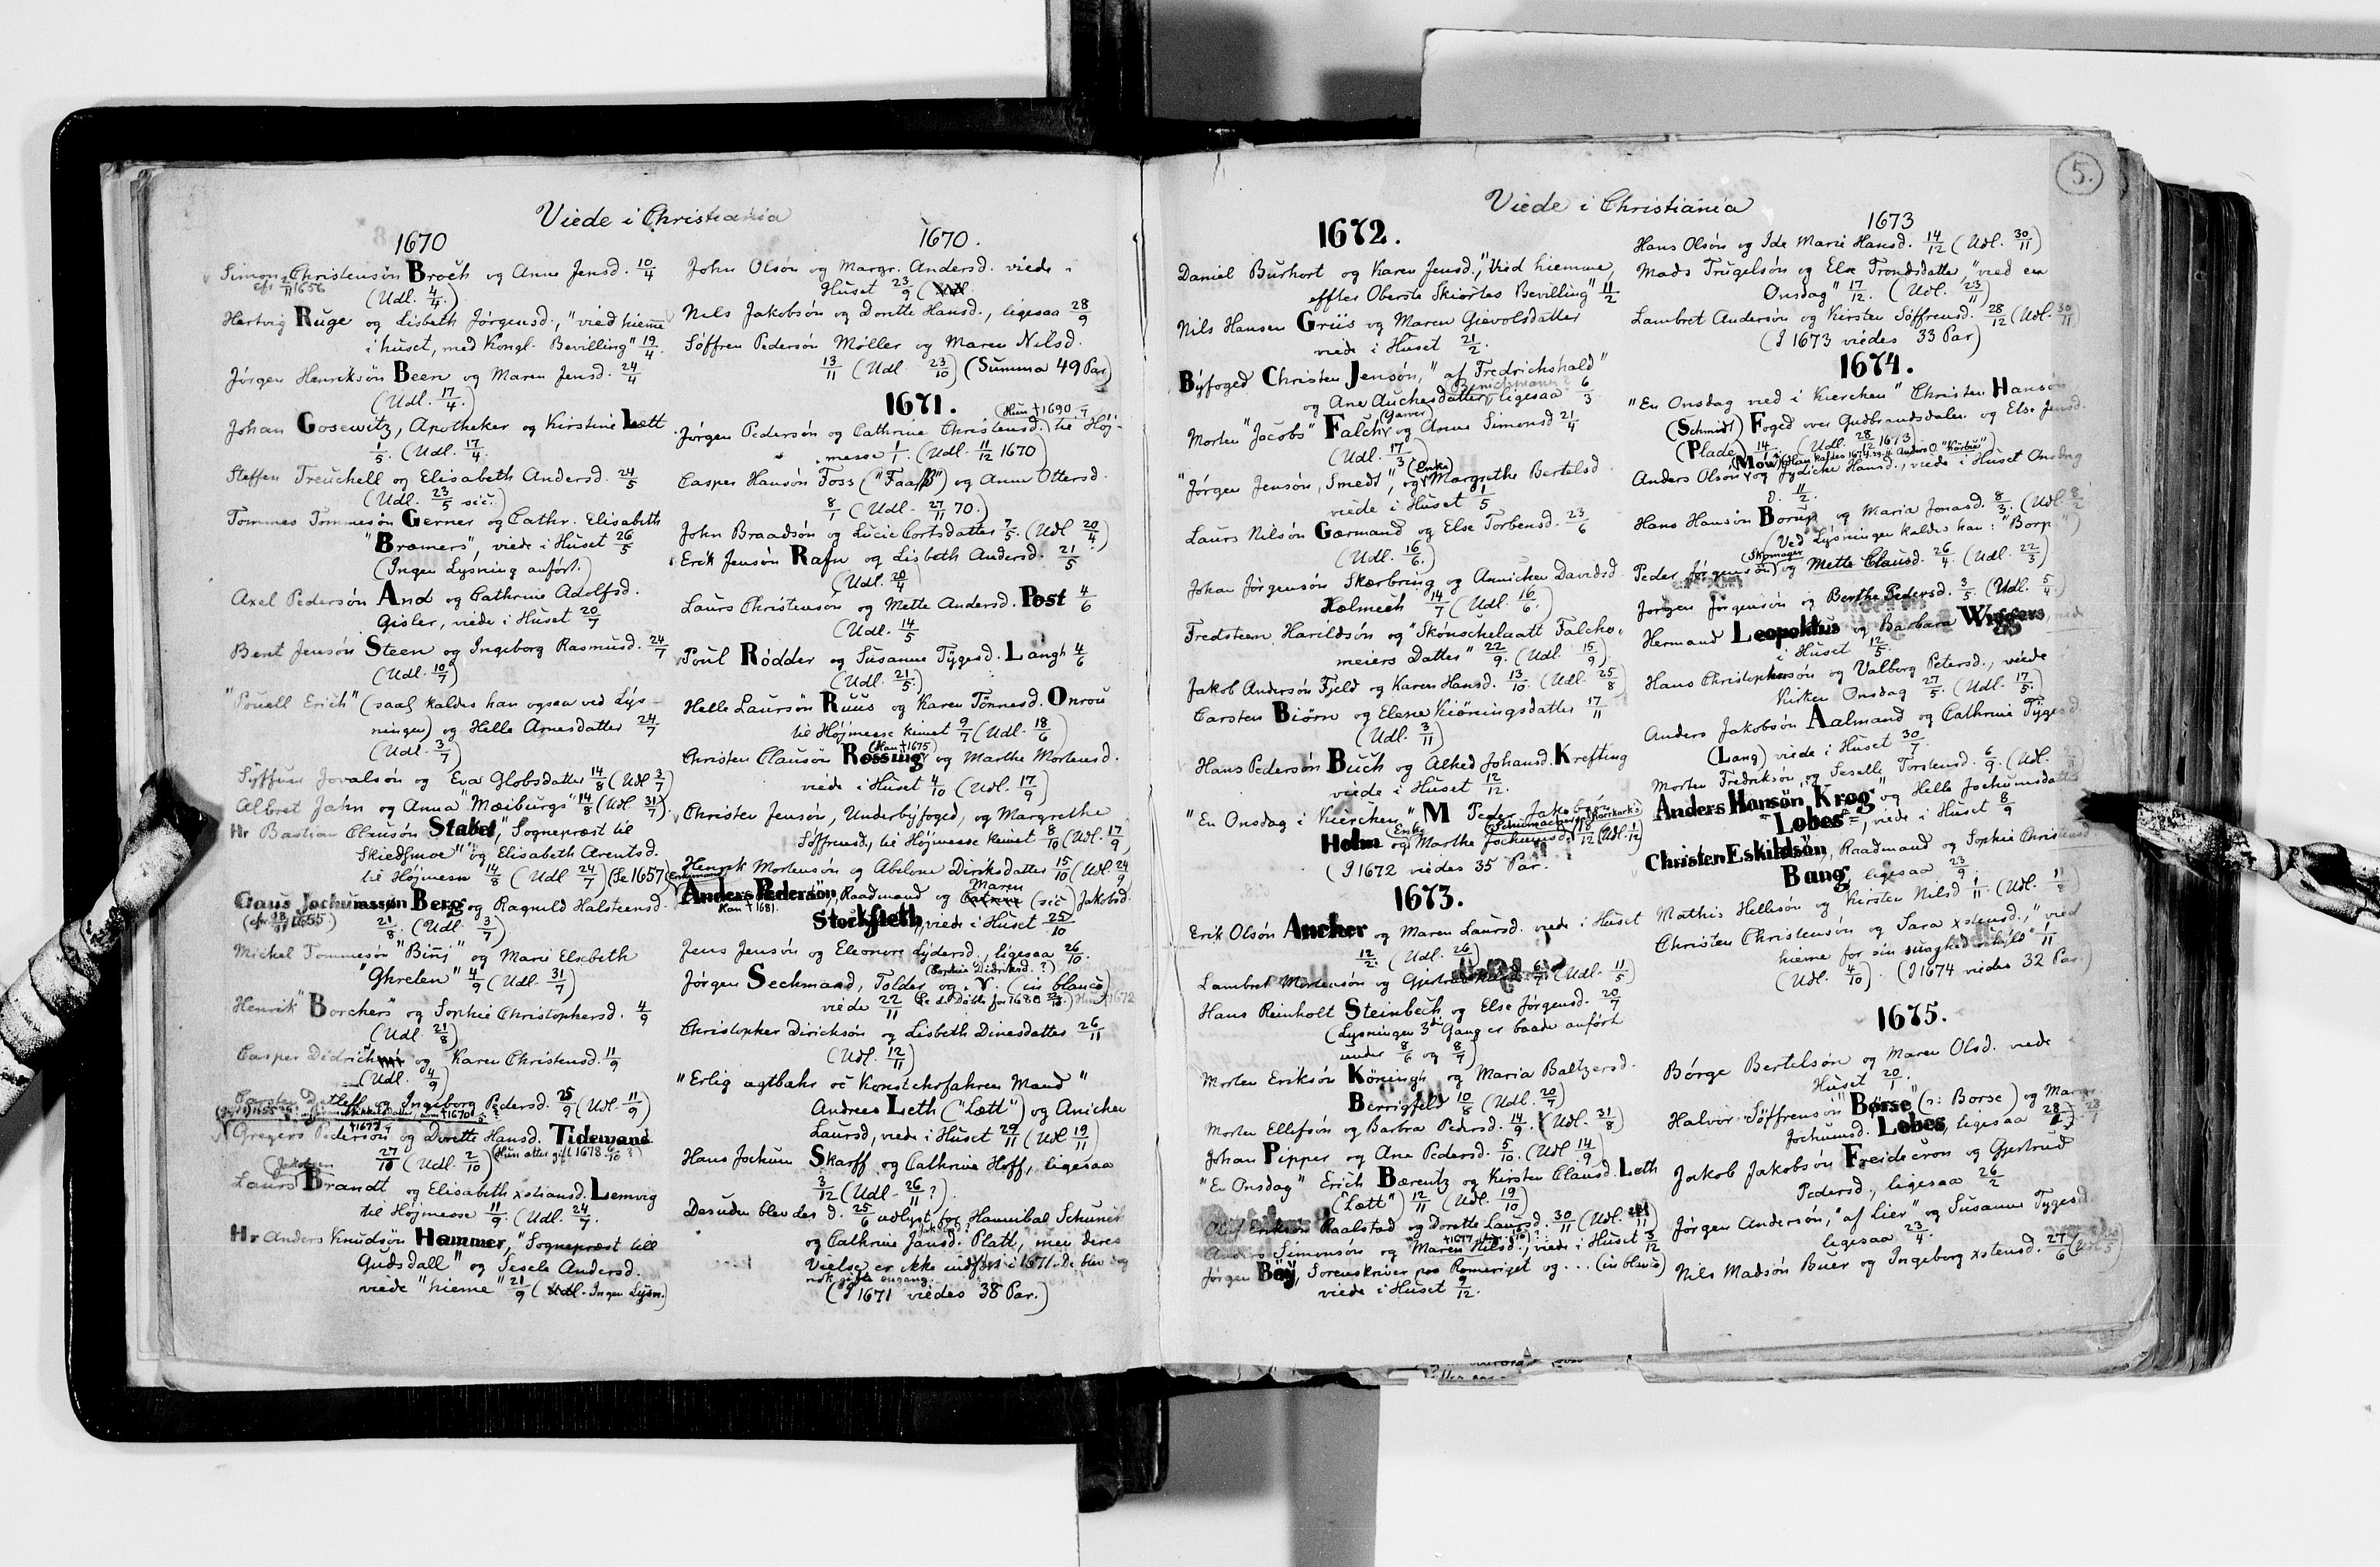 Viede i Christiania
1670
Simon Christensøn Broch og Anne Jensd. 10/4
cfr 2/11 1656 (Udl. 4/4.)
Hertvig Ruge og Lisbeth Jørgensd., "vied hieme
i huset, med Kongl. Bevilling" 19/4.
Jørgen Henriksøn Been og Maren Jensd. 24/4
(Udl. 17/4.)
Johan Gosewitz, Apotheker og Kirstine Lætt
1/5. (Udl. 17/4.
Steffen Treuchell og Elisabeth Andersd. 24/5
(Udl. 23/5 sic.)
Tommes Tommesøn Gerner og Cathr. Elisabeth
"Bremers", viede i Huset 26/5
(Ingen Lysning anført.)
Axel Pedersøn And og Cathrine Adolfsd.
Gisler, viede i Huset 20/7
Bent Jensøn Steen og Ingeborg Rasmusd. 24/7
(Udl. 10/7)
"Pouell Erich" (saal. kaldes han ogsaa ved Lys-
ningen) og Helle Arnesdatter 24/7
(Udl. 3/7)
Syffuer Jovalsøn og Eva Globsdatter 14/8 (Udl 3/7)
Albret Jahn og Anna "Mæiburgs" 14/8 (Udl. 31/7).
Hr Bastian Clausøn Stabel, "Sognepræst til
Skiedsmoe" og Elisabeth Arentsd.
til Højmesse 14/8 (Udl 24/7) (Se 1657)
Gaus Jochumssøn Berg og Ragnild Halsteensd.
21/8. (Udl. 3/7)
Mickel Tommesøn "Bing" og Marie Elsebeth
"Ghrelen" 4/9 (Udl. 31/7)
Henrik "Borchers" og Sophie Christophersd. 4/9
(Udl. 21/8)
Casper Didrich og Karen Christensd. 11/9
(Udl. 4/9)
Carsten Detleff og Ingeborg Pedersd. 25/9 (Udl. 11/9)
Gregers Pedersøn og Dorette Hansd. Tidemand
27/10 (Udl. 2/10) (Hun atter gift 1678 6/10 ?)
Jakobsøn
Laurs Brandt og Elisabeth xstiansd. Lemvig
til Højmesse 11/9. (Udl. 24/7.
Hr Anders Knudsøn Hammer, "Sognepræst till
Gudsdall" og Sesele Andersd.
viede "hieme" 21/9 (Udl. Ingen Lysn.)
1670.
John Olsøn og Margr. Andersd. viede i
Huset 23/9 (Udl.
Nils Jakobsøn og Dorette Hansd., ligesaa 28/9
Søffren Pedersøn Møller og Maren Nilsd.
13/11 (Udl 23/10) (Summa 49 Par)
1671.
Jørgen Pedersøn og Cathrine Christensd. til Høj-
messe 1/1. (Udl. 11/12 1670)
Casper Hansøn Foss ("Faaß") og Anne Ottersd.
8/1 (Udl. 27/11 70.)
John Braadsøn og Lucie Cortsdatter 7/5. (Udl 20/4.)
Erik Jensøn Rafn og Lisbeth Andersd. 21/5
(Udl. 20/4)
Laurs Christensøn og Mette Andersd. Post 4/6
(Udl. 14/5
Poul Rødder og Susanne Tygesd. Langh 4/6
(Udl. 21/5.)
Helle Laursøn Ruus og Karen Tønnesd. Onrou
til Højmesse kemet 9/7 (Udl. 18/6)
(Han †1675)
Christen Clausøn Røssing og Marthe Mortensd.
viede i Huset 4/10 (Udl. 17/9)
Christen Jensøn, Underbyfoged, og Margrethe
Søffrensd., til Højmesse kemet 8/10 (Udl. 17/9)
Henrik Mortensøn og Abelone Diriksdatter 15/10 (Udl. 24/9
Maren
Anders Pedersøn, Raadmand og Catrine (sic) Jakobsd.
Han †1681. Stockfleth, viede i Huset 25/10
Jens Jensøn og Eleonore Lydersd., ligesaa 26/10.
(Dorthie Didriksd. ?)
Jørgen Seckmand, Tolder og . N. (in blanco)
viede 22/11
Christopher Dirichsøn og Lisbeth Dinesdatter 26/11
(Udl. 12/11)
"Erlig agtbahr oc Konstehrfahren Mand"
Andreas Leth ("Lætt") og Anichen
Laursd, viede i Huset 29/11 (Udl 19/11)
Hans Jochum Skarff og Cathrine Hoff, ligesaa
3/12 (Udl. 26/11 ?).
Desuden blev der d. 25/6 udlyst for Hannibal Schunit
og Cathrine Jansd. Platt, men deres
Vielse er ikke indført i 1671. De blev dog
nok gifte engang.
(I 1671 viedes 38 Par.)
5.
Viede i Christiania
1672.
Daniel Burhort og Karen Jensd., "Vied hiemme,
effter Oberste Skiørtes Bevilling" 11/2
Nils Hansen Griis og Maren Gievolsdatter
viede i Huset 21/2.
Byfoged Christen Jensøn, "af Fredrichshald"
og Ane Auchesdatter, ligesaa 6/3
(Garver)
Morten "Jacobs" Falch og Anne Simonsd 21/4
(Udl. 17/3)
(Enke)
"Jørgen Jensøn, Smedt", og Margrethe Bertelsd.
viede i Huset 1/5
Laurs Nilsøn Garmand og Else Torbensd. 23/6
(Udl. 16/6.)
Johan Jørgensøn Skærbring og Annichen Davidsd
Holmech 14/7 (Udl. 16/6.)
Fredsteen Harildsøn og "Skønschelaatt Falcke-
meiers Datter" 22/9. (Udl. 15/9)
Jakob Andersøn Fjeld og Karen Hansd. 13/10. (Udl. 25/8)
Carsten Biørn og Elesne Kiøningsdatter 17/11
(Udl. 3/11)
Hans Pedersøn Buch og Alhed Johansd. Krefting
viede i Huset 12/12.
"En Onsdag i Kierchen", M Peder Jakobsøn
Holm og Marthe Jochumsd. 18/12 (Udl. 1/12)
(I 1672 viedes 35 Par.
1673.
Erik Olsøn Ancher og Maren Laursd. viede i Huset
12/2. (Udl. 26/1)
Lambret Mortensøn og Gjertrud 6/7 (Udl. 11/5)
Hans Reinholt Steinbech og Else Jørgensd. 20/7
(Lysningen 3die Gang er baade anført
under 8/6 og 8/7)
Morten Eriksøn Köningh og Maria Baltzersd.
Berrigfeld 10/8 (Udl. 20/7)
Morten Ellefsøn og Barbra Pedersd. 14/9. (Udl. 31/8)
Johan Pipper og Ane Pedersd. 5/10. (Udl. 14/9)
"En Onsdag" Erich Bærentz og Kirsten Clausd. Leth
("Lætt") 12/11 (Udl. 19/10)
Oluf Eriksøn Raalstad og Dorette Laursd. 30/11 (Udl.
Anders Simonsøn og Maren Nilsd., viede i Huset 3/12
Jørgen Böÿ, Sorenskriver paa Romeriget og ... (in blanco)
viede i Huset 9/12.
1673
Hans Olsøn og Ide Marie Hansd. 14/12 (Udl. 30/11)
Mads Trugelsøn og Else Trondsdatter, "vied en
Onsdag" 17/12. (Udl. 23/11)
Lambret Andersøn og Kirsten Søffrensd. 28/12 (Udl. 30/11)
(I 1673 viedes 33 Par)
1674.
"En Onsdag vied i Kierchen" Christen Hansøn
(Schmidt) Foged over Gudbrandsdalen og Else Jensd.
(Plade) 14/1. (Udl. 28/12 1673)
Mow
Anders Olsøn og Jydiche Hansd., viede i Huset Onsdag
d. 11/2.
Hans Hansøn Borup og Maria Jonasd. 8/3. (Udl. 8/2)
(Ved Lysningen kaldes han: "Borp")
(Skomager
Peder Jørgensøn) og Mette Clausd. 26/4. (Udl. 22/3)
Jørgen Jørgensøn og Berthe Pedersd. 3/5. (Udl. 5/4.)
Hermand Leopoldus og Barbara Wiggers, viede
i Huset 12/5.
Hans Christophersøn og Valborg Petersd., viede
Kirken Onsdag 27/5. (Udl. 17/5.)
Anders Jakobsøn Aalmand og Cathrine Tygesd
(Lang) viede i Huset 30/7.
Morten Fredriksøn og Seselle Torstensd. 6/9. (Udl.
Anders Hansøn "Krog" og Helle Jochumsdatter
"Lobes", viede i Huset 8/9
Christen Eskildsøn, Raadmand og Sophie Christensd
Bang, ligesaa 23/9.
Mathis Hellesøn og Kirsten Nilsd 1/11. (Udl. 11/8)
Christen Christensøn og Sara xstensd., "vied
hieme for sin suaghed skyld" 1/11
(Udl. 4/10). (I 1674 viedes 32 Par.)
1675.
Børge Bertelsøn og Maren Olsd. viede
Huset 20/1.
Halvor "Søffrensøn" Børse (ɔ: Borse) og Margr.
Jochumsd. Lobes, ligesaa 28/1
Jakob Jakobsøn Freidseron og Gjertrud
Pedersd., ligesaa 26/2
Jørgen Andersøn, "af Lier" og Susanne Tygesd.
ligesaa 23/4.
Nils Madsøn Buer og Ingeborg xstensd. 27/6